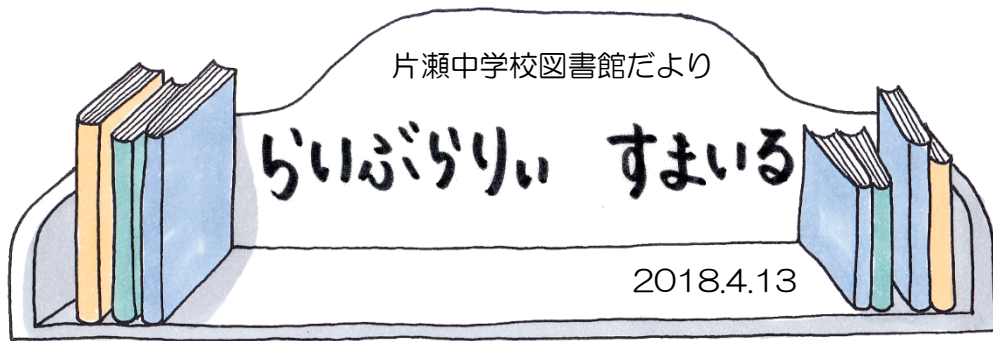 片瀬中学校図書館だより
らいぶらりぃ　すまいる
2018.4.13